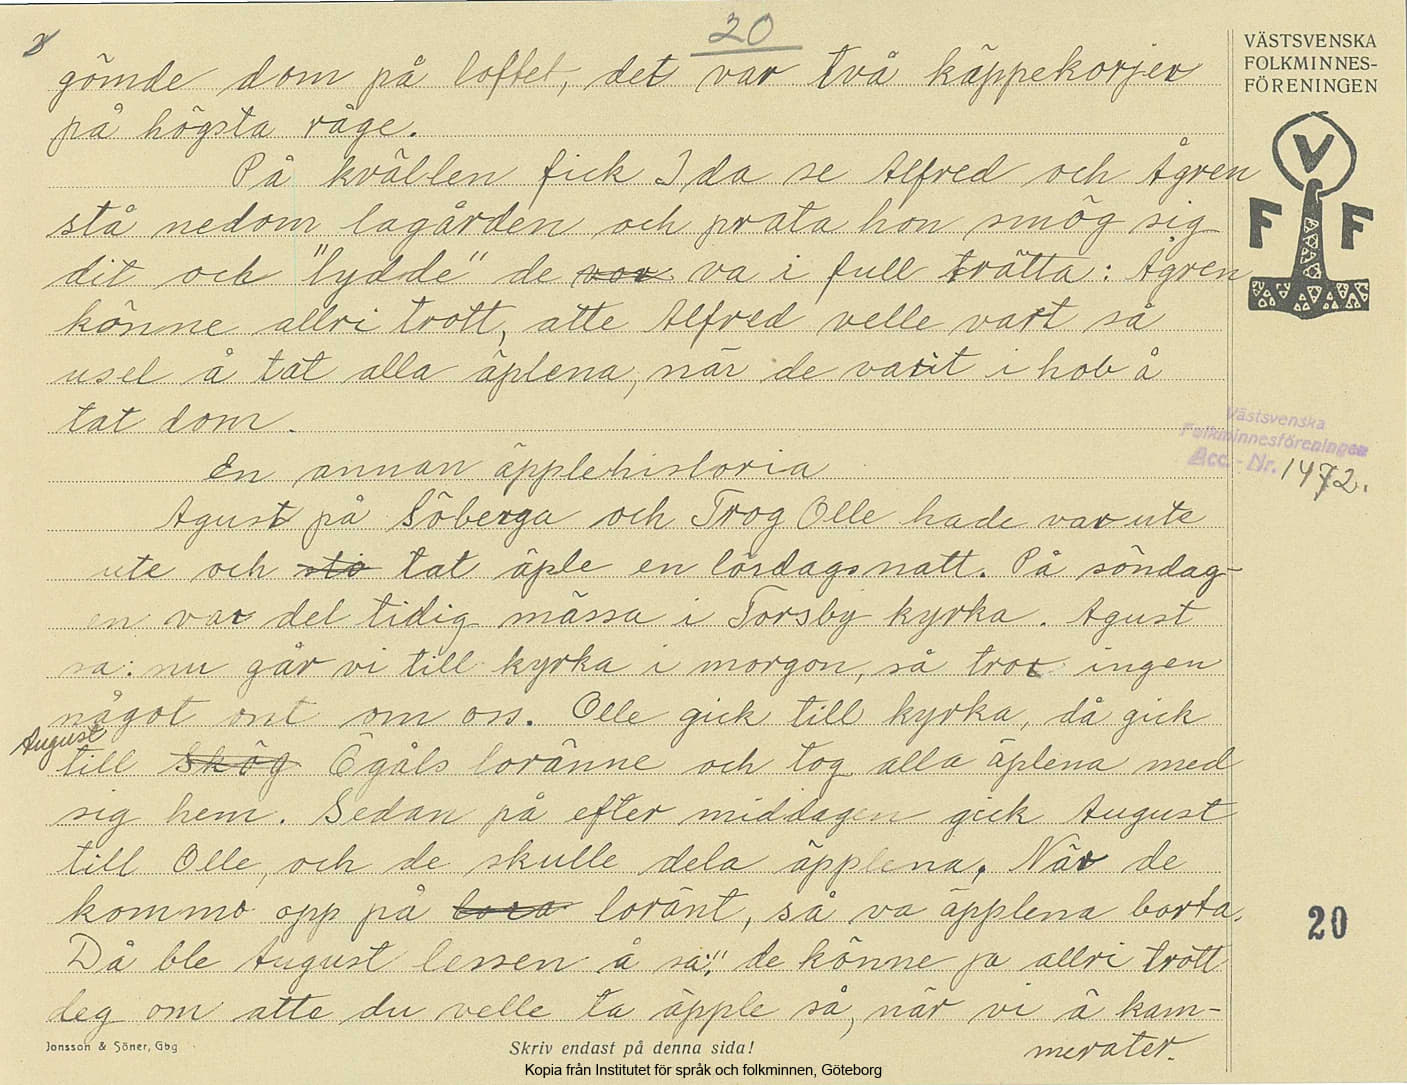 20
gömde dom på loftet, det var två käppekorjer
på högsta råge.
På kvällen fick Ida se Alfred och Ågren
stå nedom lagården och prata hon smög sig
dit och "lydde" de var va i full trätta: Ågren
könne allri trott, atte Alfred velle vart så
usel å tat alla äplena, när de varit i hob å
tat dom.
En annan äpplehistoria
Agust på Söberga och Trog Olle hade var ute
ute och sto tat äple en lördagsnatt. På söndag-
en var det tidig mässa i Torsby kyrka. Agust
sa: nu går vi till kyrka i morgon, så tror ingen
något ont om oss. Olle gick till kyrka, då gick
August
till Skög Ögåls loränne och tog alla äplena med
sig hem. Sedan på efter middagen gick August
till Olle, och de skulle dela äpplena. När de
kommo opp på lora loränt, så va äpplena borta.
Då ble August lessen å sa:" de könne ja allri trott
deg om atte du velle ta äpple så, när vi ä kam-
merater.
VÄSTSVENSKA
FOLKMINNES-
FÖRENINGEN
V
F F
Västsvenska
Folkminnesföreningen
Acc.-Nr. 1472.
20
Jonsson & Söner, Gbg
Skriv endast på denna sida!
Kopia från Institutet för språk och folkminnen, Göteborg